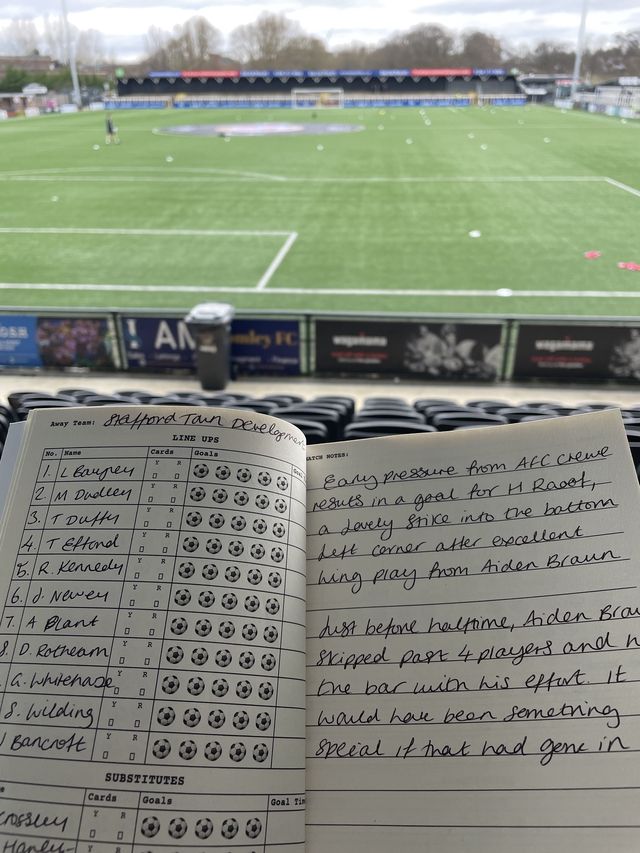 AM
mley FC
wagamama
wagamama
Away Team: Stafford Town Development
LINE UPS
No. Name Cards Goals
Y R
1. L Bargery
2. M Dudley
3. T Duffy
4. T Effond
5. R. Kennedy
6. J. Newey
7. A Plant
8. D. Rotheam
. G. Whitehase
S. Wilding
J Bancroft
SUBSTITUTES
e Cards Goals Goal Tim
Y R
crossley
Hanley
ATCH NOTES:
Early pressure from AFC crewe
results in a goal for H Raoof,
a lovely strike into the bottom
left corner after excellent
wing play from Aiden Braun
Just before halftime, Aiden Brau
skipped past 4 players and h
the bar with his effort. It
would have been something
special if that had gone in